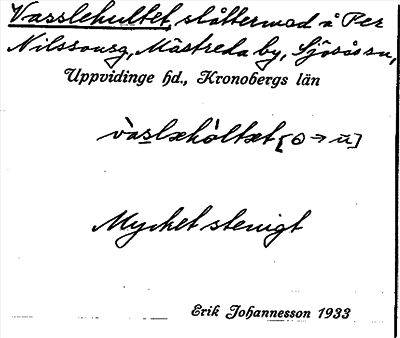 Vasslekultet, slåttermad å Per
Nilssonsg, Mästreda by, Sjösås sn,
Uppvidinge hd., Kronobergs län
Mycket stenigt
Erik Johannesson 1933